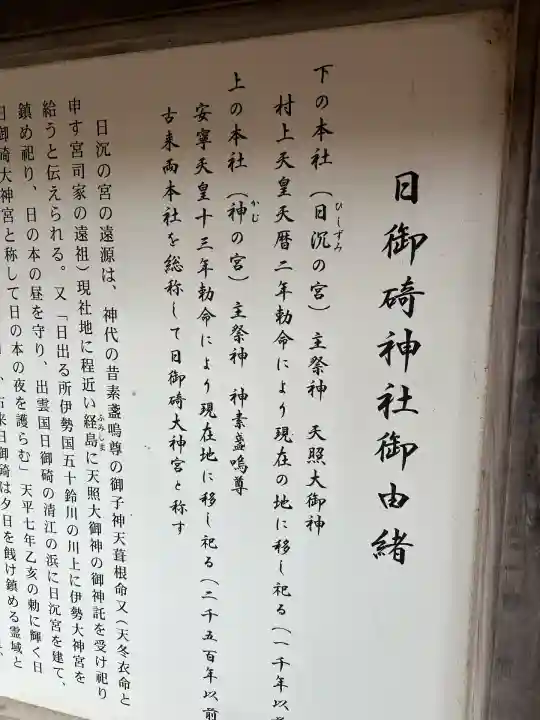 日御碕神社御由緒
下の本社（日沉の宮）主祭神 天照大御神
ひしずみ
村上天皇天暦二年勅命により現在の地に移し祀る（一千年以
上の本社（神の宮）主祭神 神素盞嗚尊
かむ
安寧天皇十三年勅命により現在地に移し祀る（二千五百年以前
古来両本社を総称して日御碕大神宮と称す
日沉の宮の遠源は、神代の昔素盞嗚尊の御子神天葺根命又（天冬衣命と
申す宮司家の遠祖）現社地に程近い経島に天照大御神の御神託を受け祀り
ふみしま
給うと伝えられる。又「日出る所伊勢国五十鈴川の川上に伊勢大神宮を
鎮め祀り、日の本の昼を守り、出雲国日御碕の清江の浜に日沉宮を建て、
日御碕大神宮と称して日の本の夜を護らむ」天平七年乙亥の勅に輝く日
古来日御碕は夕日を餞け鎮める霊域と